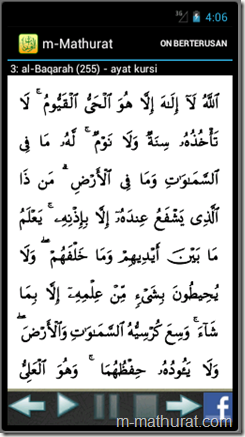 3G 4:06
m-Mathurat ON BERTERUSAN
3: al-Baqarah (255) - ayat kursi
ٱللَّهُ لَآ إِلَـٰهَ إِلَّا هُوَ ٱلْحَىُّ ٱلْقَيُّومُ ۚ لَا
تَأْخُذُهُۥ سِنَةٌ وَلَا نَوْمٌ ۚ لَّهُۥ مَا فِى
ٱلسَّمَـٰوَٰتِ وَمَا فِى ٱلْأَرْضِ ۗ مَن ذَا
ٱلَّذِى يَشْفَعُ عِندَهُۥٓ إِلَّا بِإِذْنِهِۦ ۚ يَعْلَمُ
مَا بَيْنَ أَيْدِيهِمْ وَمَا خَلْفَهُمْ ۖ وَلَا
يُحِيطُونَ بِشَىْءٍ مِّنْ عِلْمِهِۦٓ إِلَّا بِمَا
شَآءَ ۚ وَسِعَ كُرْسِيُّهُ ٱلسَّمَـٰوَٰتِ وَٱلْأَرْضَ ۖ
وَلَا يَـُٔودُهُۥ حِفْظُهُمَا ۚ وَهُوَ ٱلْعَلِىُّ
f
m-mathurat.com